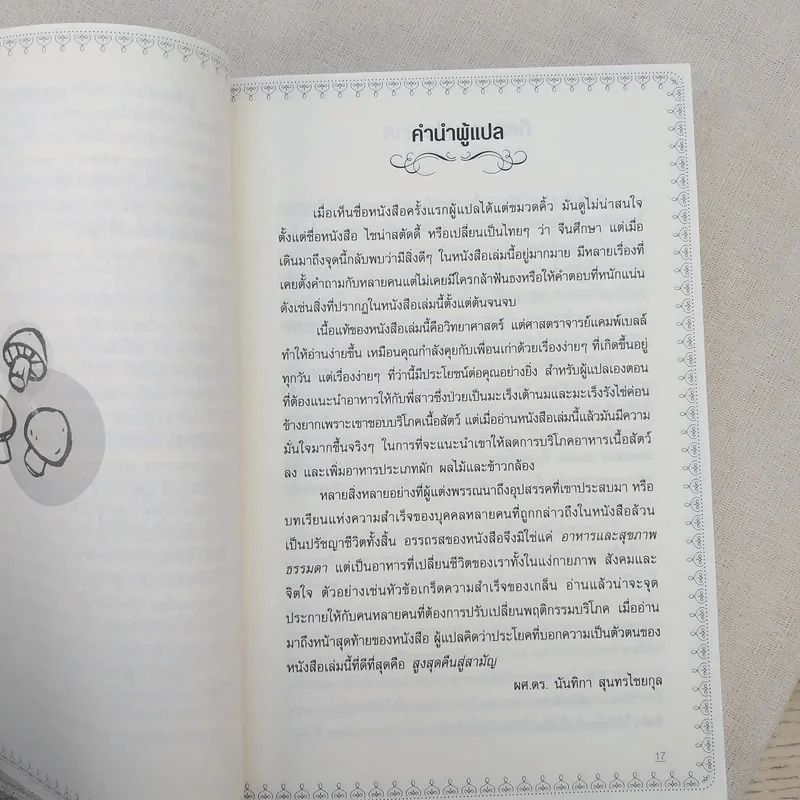 คำนำผู้แปล
เมื่อเห็นชื่อหนังสือครั้งแรกผู้แปลได้แต่ขมวดคิ้ว มันดูไม่น่าสนใจ
ตั้งแต่ชื่อหนังสือ ไชน่าสตัดดี้ หรือเปลี่ยนเป็นไทยๆ ว่า จีนศึกษา แต่เมื่อ
เดินมาถึงจุดนี้กลับพบว่ามีสิ่งดีๆ ในหนังสือเล่มนี้อยู่มากมาย มีหลายเรื่องที่
เคยตั้งคำถามกับหลายคนแต่ไม่เคยมีใครกล้าฟันธงหรือให้คำตอบที่หนักแน่น
ดังเช่นสิ่งที่ปรากฏในหนังสือเล่มนี้ตั้งแต่ต้นจนจบ
เนื้อแท้ของหนังสือเล่มนี้คือวิทยาศาสตร์ แต่ศาสตราจารย์แคมพ์เบลล์
ทำให้อ่านง่ายขึ้น เหมือนคุณกำลังคุยกับเพื่อนเก่าด้วยเรื่องง่ายๆ ที่เกิดขึ้นอยู่
ทุกวัน แต่เรื่องง่ายๆ ที่ว่านี้มีประโยชน์ต่อคุณอย่างยิ่ง สำหรับผู้แปลเองตอน
ที่ต้องแนะนำอาหารให้กับพี่สาวซึ่งป่วยเป็นมะเร็งเต้านมและมะเร็งรังไข่ค่อน
ข้างยากเพราะเขาชอบบริโภคเนื้อสัตว์ แต่เมื่ออ่านหนังสือเล่มนี้แล้วมันมีความ
มั่นใจมากขึ้นจริงๆ ในการที่จะแนะนำเขาให้ลดการบริโภคอาหารเนื้อสัตว์
ลง และเพิ่มอาหารประเภทผัก ผลไม้และข้าวกล้อง
หลายสิ่งหลายอย่างที่ผู้แต่งพรรณนาถึงอุปสรรคที่เขาประสบมา หรือ
บทเรียนแห่งความสำเร็จของบุคคลหลายคนที่ถูกกล่าวถึงในหนังสือล้วน
เป็นปรัชญาชีวิตทั้งสิ้น อรรถรสของหนังสือจึงมิใช่แค่ อาหารและสุขภาพ
ธรรมดา แต่เป็นอาหารที่เปลี่ยนชีวิตของเราทั้งในแง่กายภาพ สังคมและ
จิตใจ ตัวอย่างเช่นหัวข้อเกร็ดความสำเร็จของเกล็น อ่านแล้วน่าจะจุด
ประกายให้กับคนหลายคนที่ต้องการปรับเปลี่ยนพฤติกรรมบริโภค เมื่ออ่าน
มาถึงหน้าสุดท้ายของหนังสือ ผู้แปลคิดว่าประโยคที่บอกความเป็นตัวตนของ
หนังสือเล่มนี้ที่ดีที่สุดคือ สูงสุดคืนสู่สามัญ
ผศ.ดร. นันทิกา สุนทรไชยกุล
17